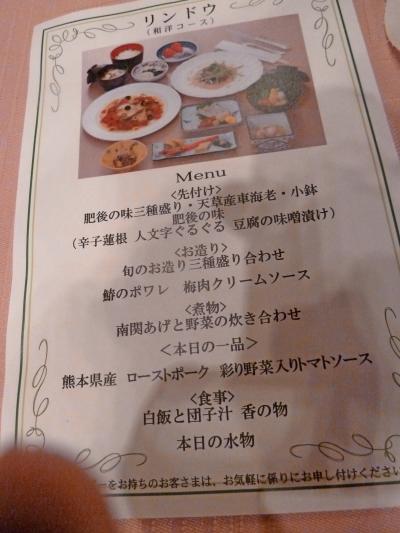 リンドウ
(和洋コース)
Menu
<先付け>
肥後の味三種盛り・天草産車海老・小鉢
肥後の味
(辛子蓮根 人文字ぐるぐる 豆腐の味噌漬け)
<お造り>
旬のお造り三種盛り合わせ
鰆のポワレ 梅肉クリームソース
<煮物>
南関あげと野菜の炊き合わせ
<本日の一品>
熊本県産 ローストポーク 彩り野菜入りトマトソース
<食事>
白飯と団子汁 香の物
本日の水物
ーをお持ちのお客さまは、お気軽に係りにお申し付けください